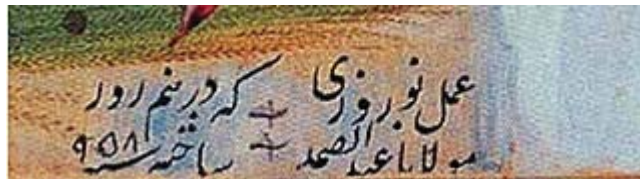 عمل نو روزی که در نیم روز
مولانا عبد الصمد ساخته سنه ۹۵۸